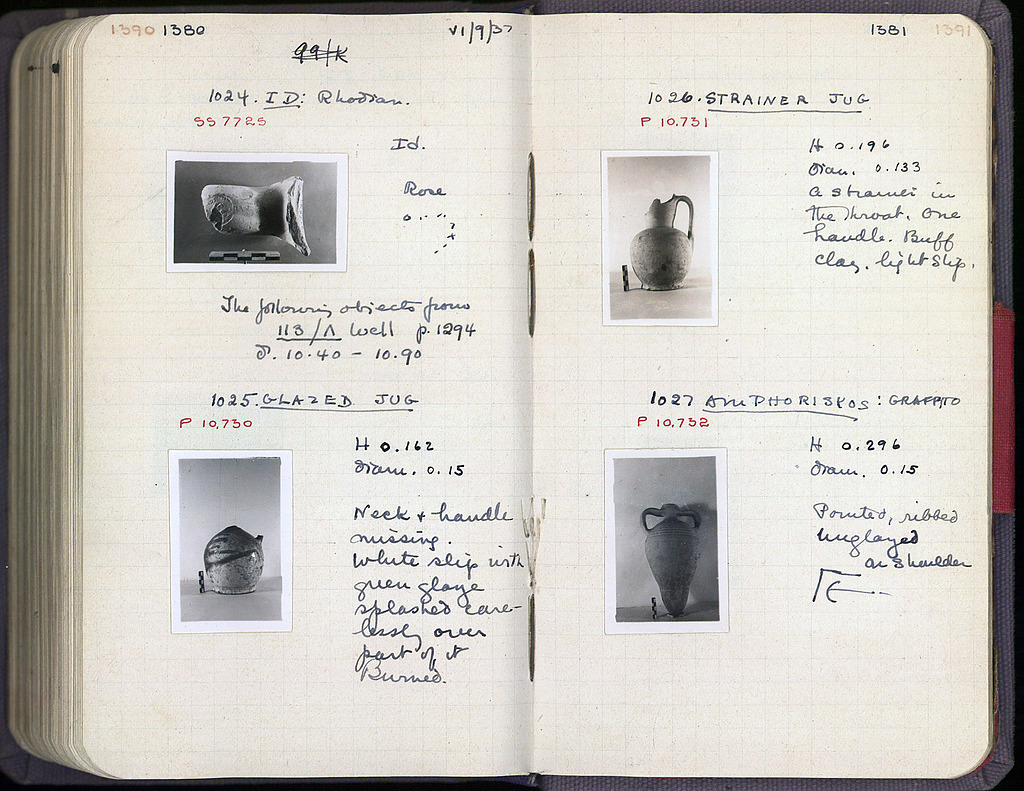 1390 1380
VI/9/37
99/K
1024. ID: Rhodian.
SS 7725
Id.
Rose
The following objects from
113/Λ Well p. 1294
10.40 - 10.90
1025. GLAZED JUG
P 10,730
H 0.162
Diam. 0.15
Neck + handle
missing.
White slip with
green glaze
splashed care-
lessly over
part of it
Burned.
1381 1391
1026. STRAINER JUG
P 10,731
H 0.196
Diam. 0.133
a strainer in
the throat. One
handle. Buff
clay, light slip.
1027 AMPHORISKOS: GRAFFITO
P 10,732
H 0.296
Diam. 0.15
Pointed, ribbed
unglazed
on shoulder